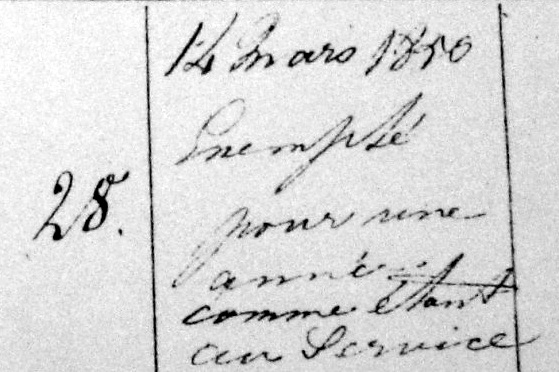 14 Mars 1850
Exempté
28.
pour une
année
comme étant
au Service